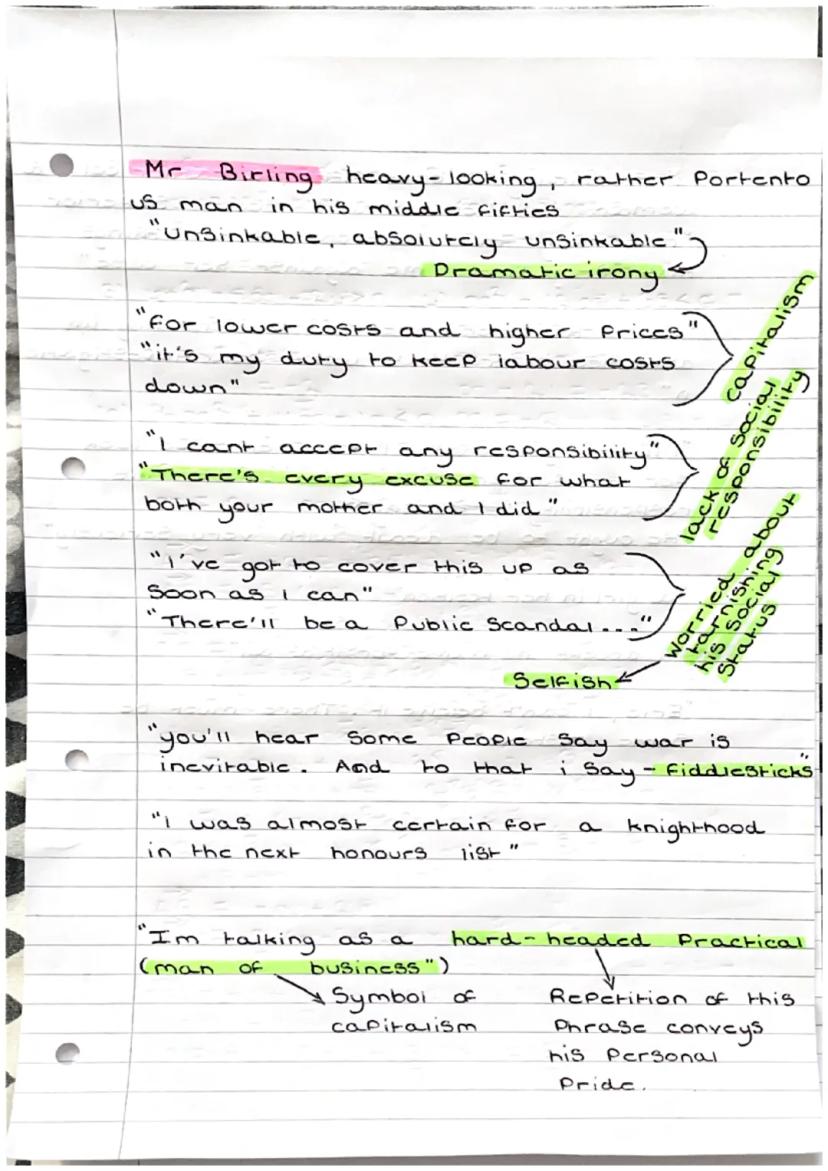 Mr Birling heavy-looking, rather Portento
us man in his middle fifties
"unsinkable, absolutely unsinkable"
Dramatic irony
"for lower costs and higher Prices"
"it's my duty to keep labour costs
down"
capitalism
"I cant accept any responsibility"
"There's every excuse for what
both your mother and I did"
lack of social
responsibility
"I've got to cover this up as
soon as I can"
"There'll be a Public Scandal..."
Worried about
tarnishing
his social
Status
Selfish
"you'll hear some People say war is
inevitable. And to that i say - fiddlesticks"
"I was almost certain for a knighthood
in the next honours list"
"Im talking as a hard-headed Practical
(man of business")
Symbol of
capitalism
Repetition of this
Phrase conveys
his Personal
Pride.